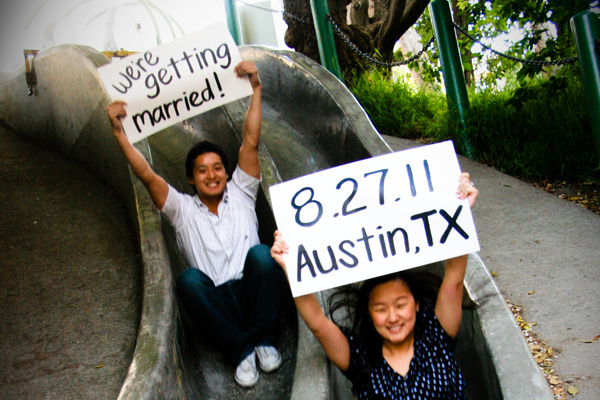 we're getting
married!
8.27.11
Austin, TX